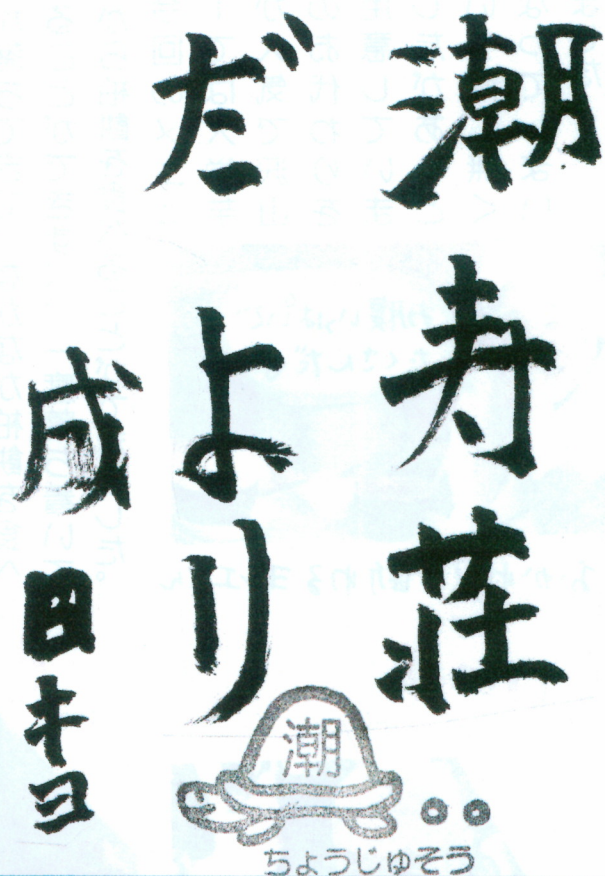 潮寿荘
だより
成田キヨ
潮
ちょうじゅそう